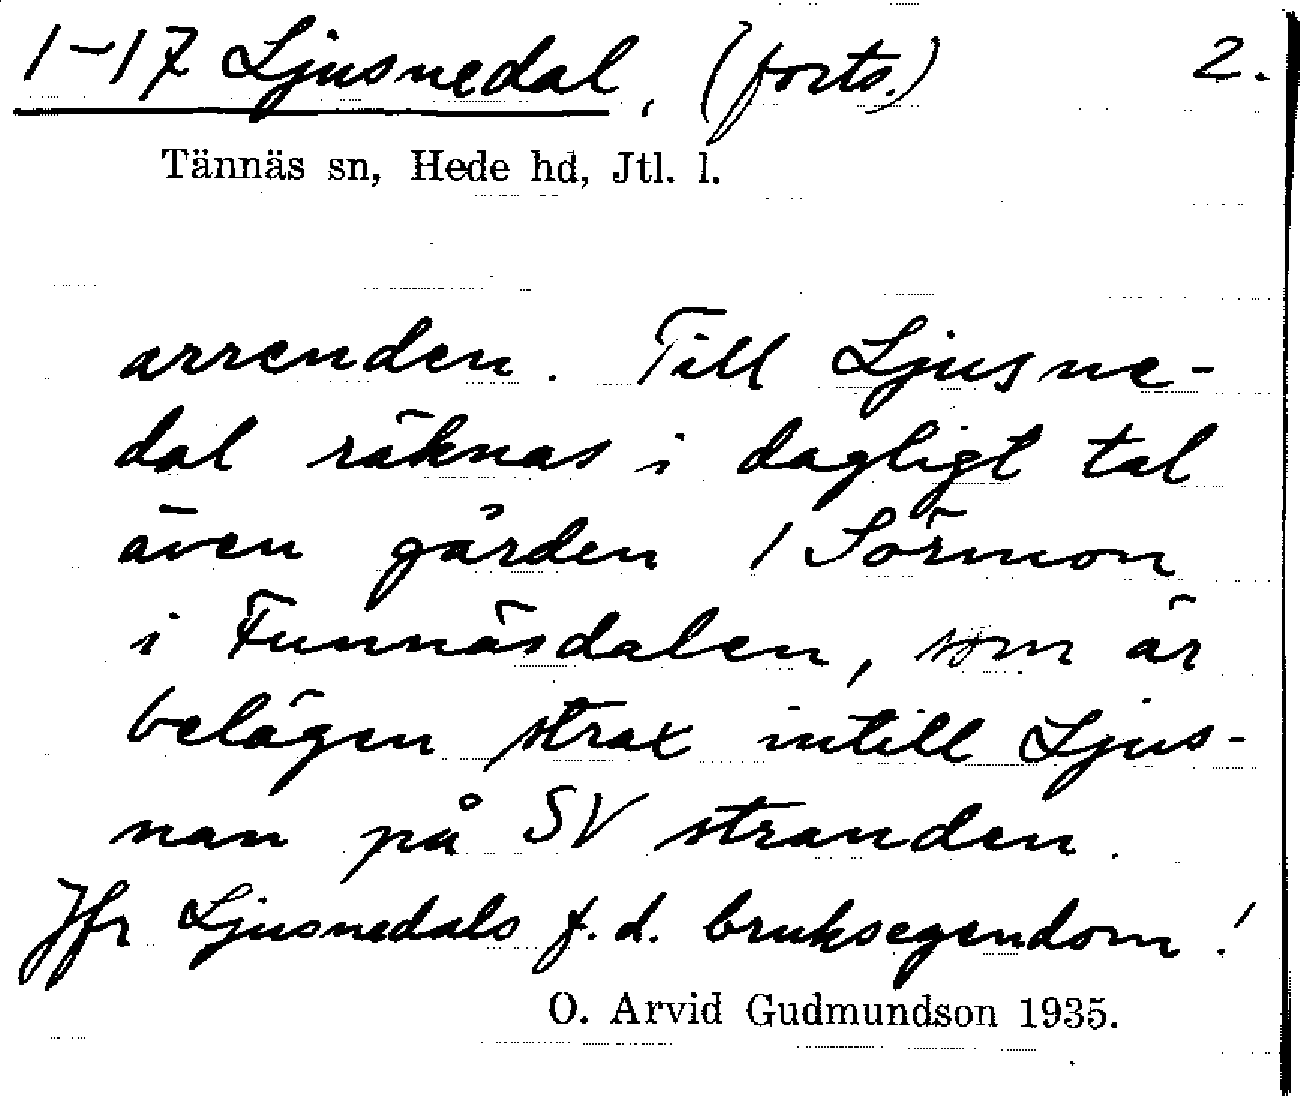 1-17 Ljusnedal, (forts.) 2.
Tännäs sn, Hede hd, Jtl. l.
arrenden. Till Ljusne-
dal räknas i dagligt tal
även gården 1 Sörmon
i Funnäsdalen, som är
belägen strax intill Ljus-
nan på SV stranden.
Jfr Ljusnedals f.d. bruksegendom!
O. Arvid Gudmundson 1935.